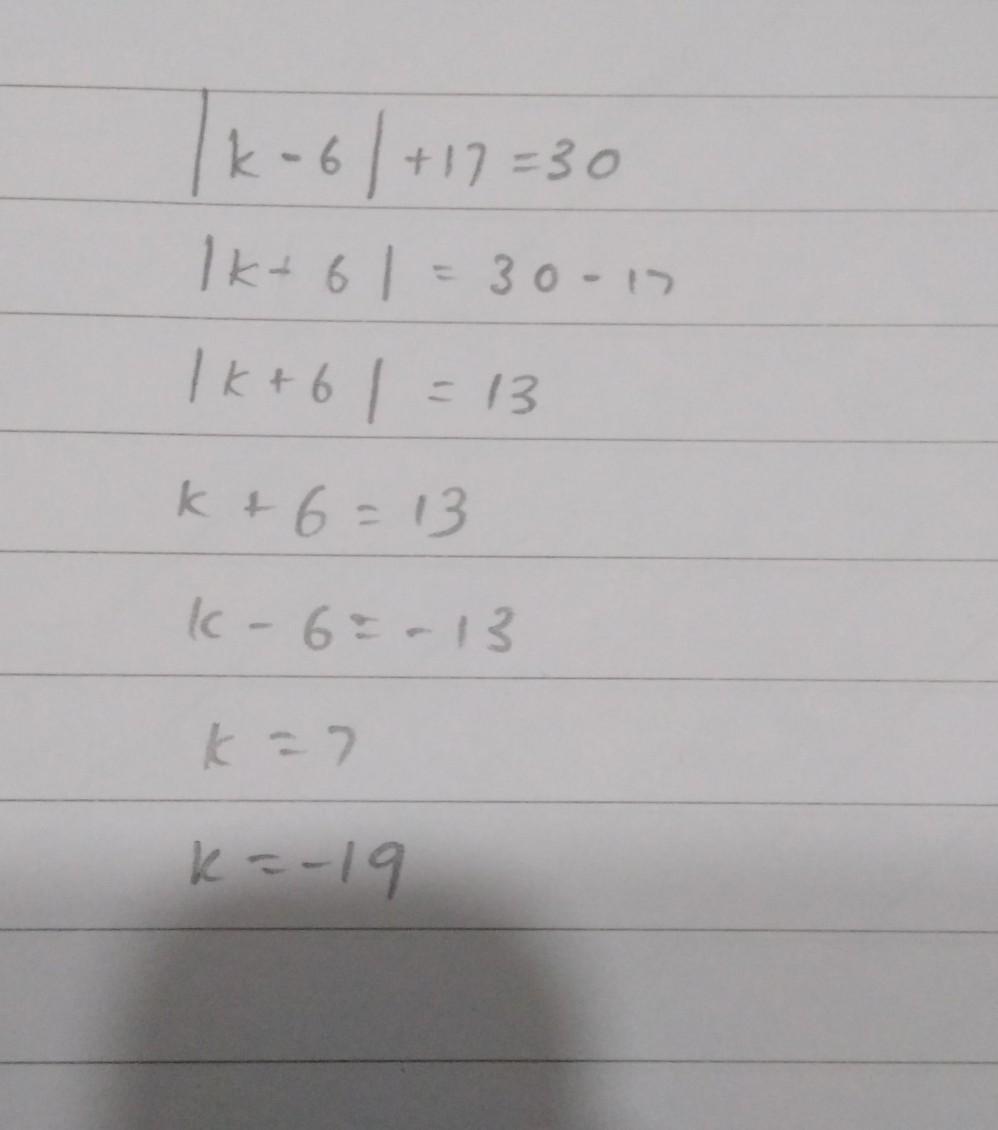 |k - 6| + 17 = 30
|k + 6| = 30 - 17
|k + 6| = 13
k + 6 = 13
k - 6 = - 13
k = 7
k = - 19